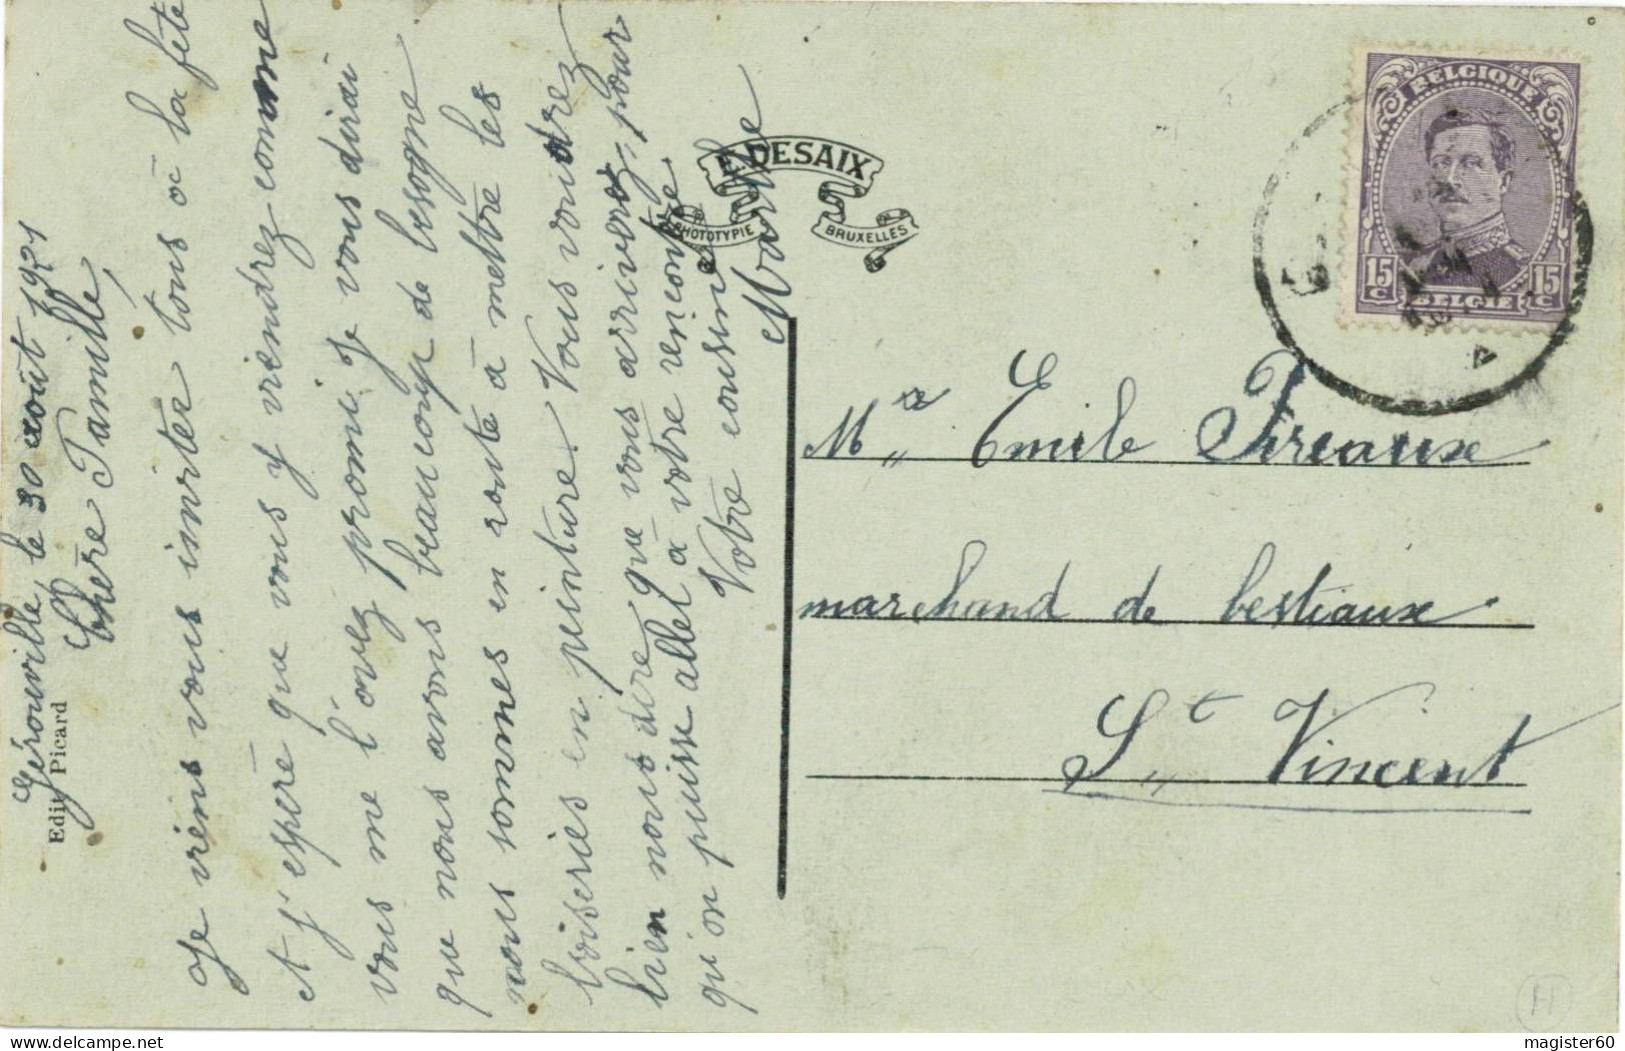 Gérouville, le 30 août 1921
Chère Famille,
Je viens vous inviter tous à la fête
et j'espère que vous y viendrez comme
vous me l'avez promi. Je vous dirai
que nous avons beaucoup de besogne
nous sommes en route à mettre les
boiseries en peinture. Vous voudrez
bien nous dire que vous arriverez, pour
qu'on puisse aller à votre rencontre
Votre cousine
Edit. Picard
E. DESAIX
PHOTOTYPIE
BRUXELLES
BELGIQUE
15 C
15 C
BELGIE
Mr Emile Pireaux
marchand de bestiaux
St Vincent
H
magister60